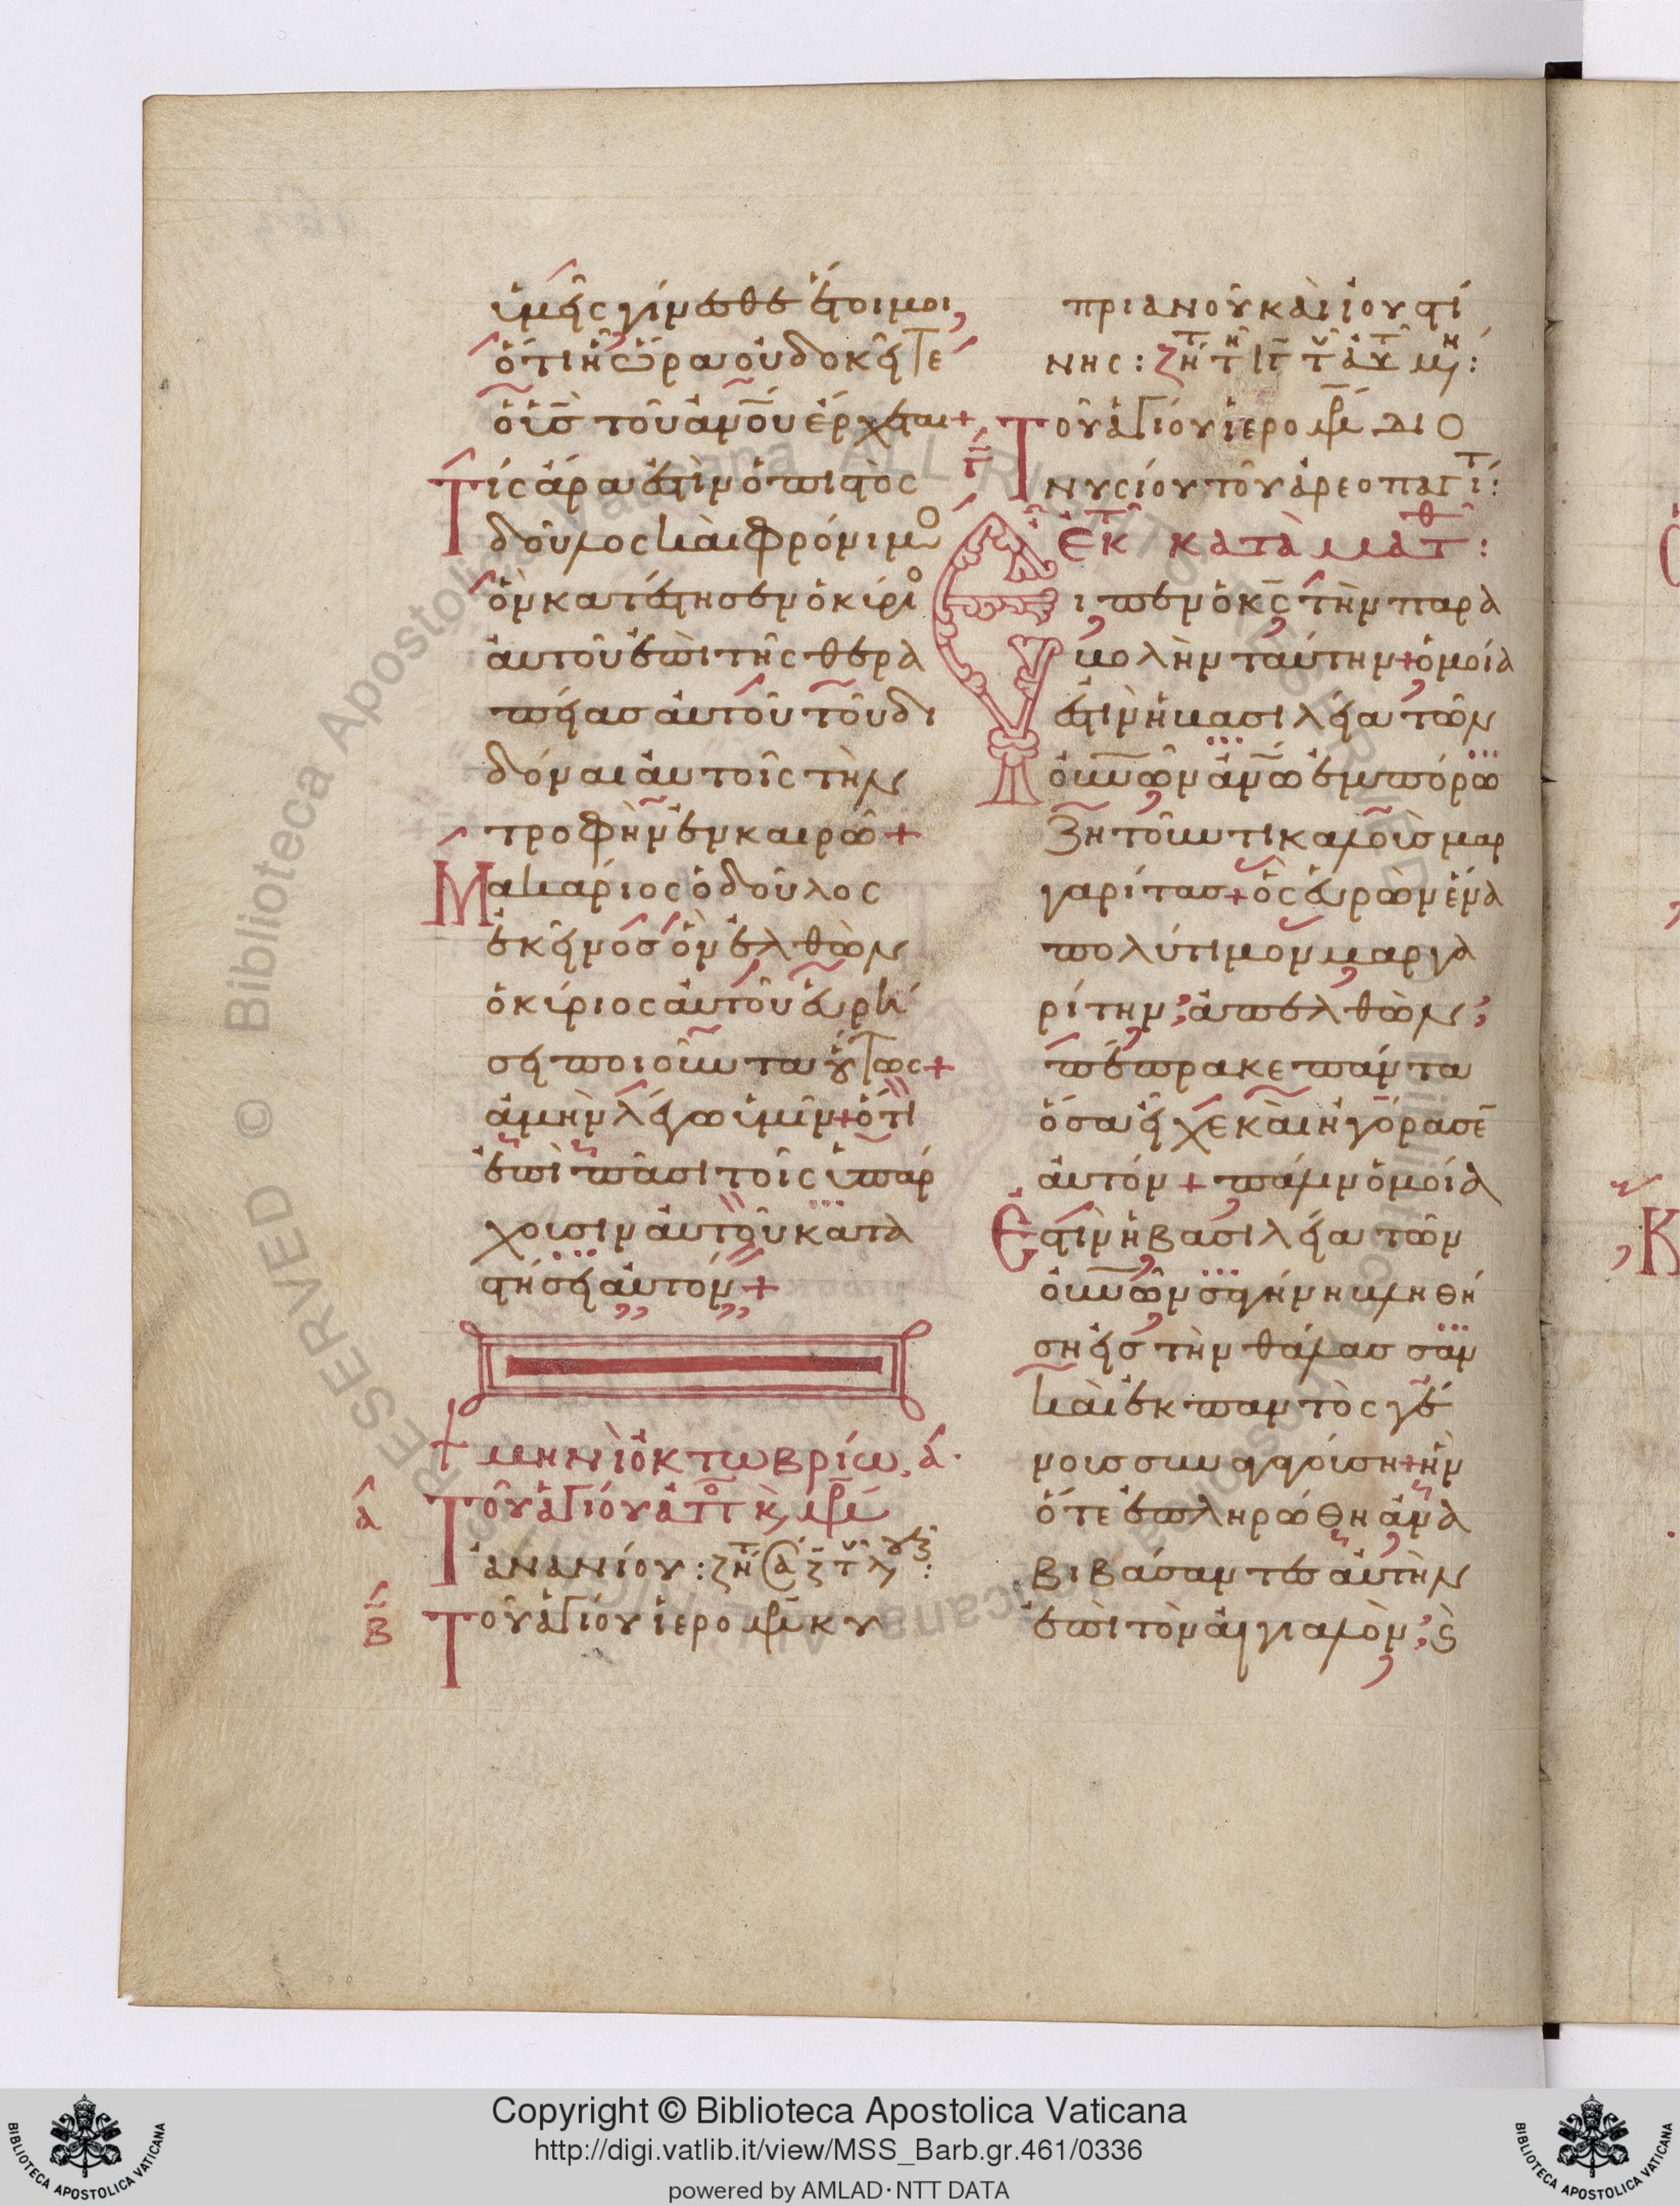 ὑμεῖς γίνεσθε ἕτοιμοι,
ὅτι ἡ ὥρα οὐ δοκεῖτε
ὁ υἱσ τοῦ ἀνου ἔρχεται +
Τίς ἄρα ἐστὶν ὁ πιστὸς
δοῦλος καὶ φρόνιμο
ὃν κατέστησεν ὁ κύριο
αὐτοῦ ἐπὶ τῆς θερα
πείασ αὐτοῦ τοῦ δι
δόναι αὐτοῖς τὴν
τροφὴν ἐν καιρῶ +
Μακάριος ὁ δοῦλος
ἐκεῖνοσ ὃν ἐλθὼν
ὁ κύριος αὐτοῦ εὑρή
σει ποιοῦντα οὕτως +
ἀμὴν λέγω ὑμῖν + ὅτι
ἐπὶ πᾶσι τοῖς ὑπάρ
χουσιν αὐτοῦ κατα
στήσει αὐτόν +
+ μηνὶ ὀκτωβρίω. ά.
ά Τοῦ ἁγίου ἀπ
ἀνανίου :
β Τοῦ ἁγίου ἱερο κυ
πριανοῦ καὶ ἰουστί
νης :
γ Τοῦ ἁγίου ἱερο διο
νυσίου τοῦ ἀρεοπαγι :
ἐκ κατὰ ματθ :
Εἶπεν ὁ κς τὴν παρα
βολὴν ταύτην + ὁμοία
ἐστὶν ἡ βασιλεία τῶν
ουνων ἀνω ἐμπόρω
ζητοῦντι καλοὺσ μαρ
γαρίτασ + ὃς εὑρὼν ἕνα
πολύτιμον μαργα
ρίτην, ἀπελθὼν,
πέπρακε πάντα
ὅσα εἶχε καὶ ἠγόρασε
αὐτόν + πάλιν ὁμοία
Ἐστὶν ἡ βασιλεία τῶν
ουνων σαγήνη βληθεί
ση εἰσ τὴν θάλασσαν
καὶ ἐκ παντὸς γέ
νουσ συναγούση + ἣν
ὅτε ἐπληρώθη ἀνα
βιβάσαντεσ αὐτὴν
ἐπὶ τὸν αἰγιαλὸν, ϗ
Copyright © Biblioteca Apostolica Vaticana
http://digi.vatlib.it/view/MSS_Barb.gr.461/0336
powered by AMLAD·NTT DATA